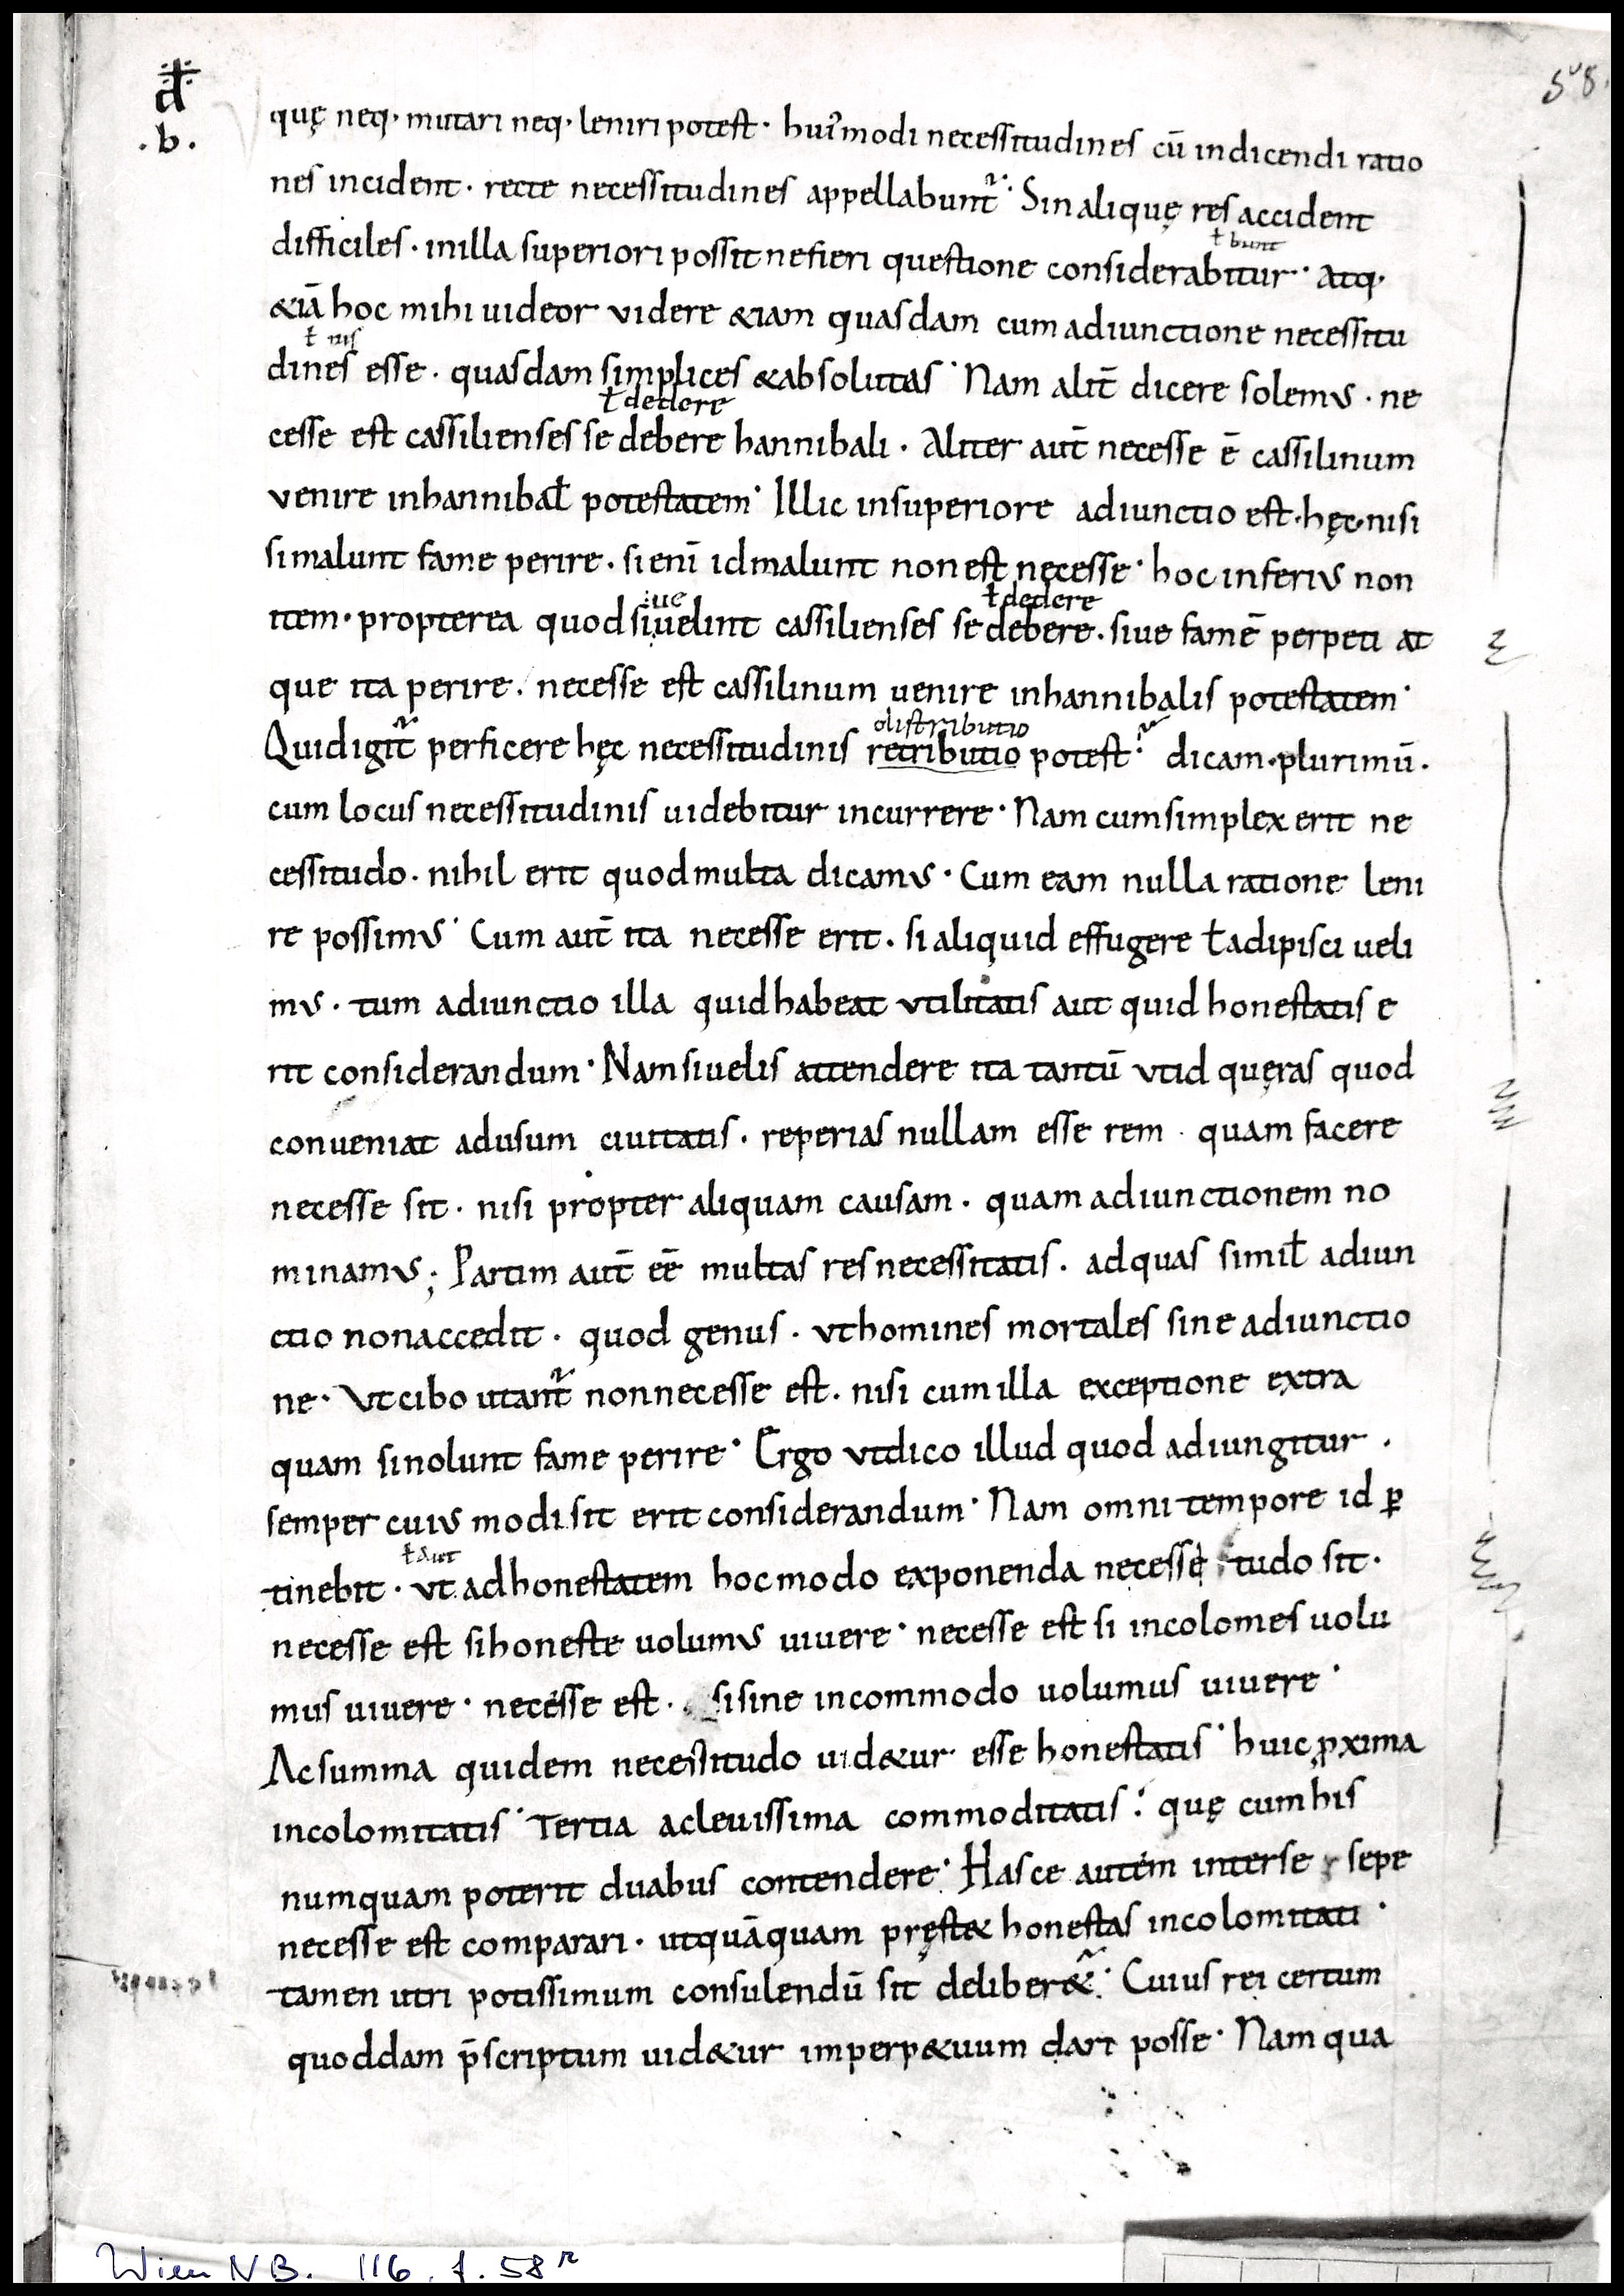 đ
.b.
58.
quę neq· mutari neq· leniri potest· hui᾿modi necessitudines cū indicendi ratio
nes incident· recte necessitudines appellabunt᷑· Sin aliquę res accident
ł bunt
difficiles· inilla superiori possit nefieri questione considerabitur· atq·
&iā hoc mihi uideor videre &iam quasdam cum adiunctione necessitu
ł nis
dines esse· quasdam simplices &absolutas· Nam alit̄ dicere solemus· ne
ł dedere
cesse est cassilienses se debere hannibali· Aliter aut̄ necesse ē cassilinum
venire inhannibał potestatem· Illic insuperiore adiunctio est· hęc· nisi
simalunt fame perire· sienī idmalunt non est necesse· hoc inferius non
:ue
ł dedere
item· propterea quod siuelint cassilienses se debere· siue famē perpeti at
que ita perire· necesse est cassilinum uenire inhannibalis potestatem·
distributio
Quidigit᷑ perficere hęc necessitudinis retributio potest? dicam· plurimū·
cum locus necessitudinis uidebitur incurrere· Nam cumsimplex erit ne
cessitudo· nihil erit quod multa dicamus· Cum eam nulla ratione leni
re possimus· Cum aut̄ ita necesse erit· si aliquid effugere ł adipisci ueli
mus· tum adiunctio illa quid habeat vtilitatis aut quid honestatis e
rit considerandum· Nam siuelis attendere ita tantū vtid quęras quod
conueniat adusum ciuitatis· reperias nullam esse rem· quam facere
necesse sit· nisi propter aliquam causam· quam adiunctionem no
minamus; Partim aut̄ eē multas res necessitatis· adquas simił adiun
ctio nonaccedit· quod genus· vthomines mortales sine adiunctio
ne· Vtcibo utant᷑ nonnecesse est· nisi cum illa exceptione extra
quam sinolunt fame perire· Ergo vtdico illud quod adiungitur·
semper cuius modi sit erit considerandum· Nam omni tempore id ꝑ
ł aut
tinebit· vt adhonestatem hocmodo exponenda necesse tudo sit·
necesse est sihoneste uolumus uiuere· necesse est si incolomes uolu
mus uiuere· necesse est· sisine incommodo uolumus uiuere·
Ac summa quidem necessitudo uid&ur esse honestatis· huic ꝓxima
incolomitatis· Tertia acleuissima commoditatis: quę cum his
numquam poterit duabus contendere· Hasce autem interse sepe
necesse est comparari· utquāquam pręst& honestas incolomitati·
tamen utri potissimum consulendū sit deliber&᷑· Cuius rei certum
quoddam p̄scriptum uid&ur imperp&uum dari posse· Nam qua
Wien NB. 116, f. 58 r